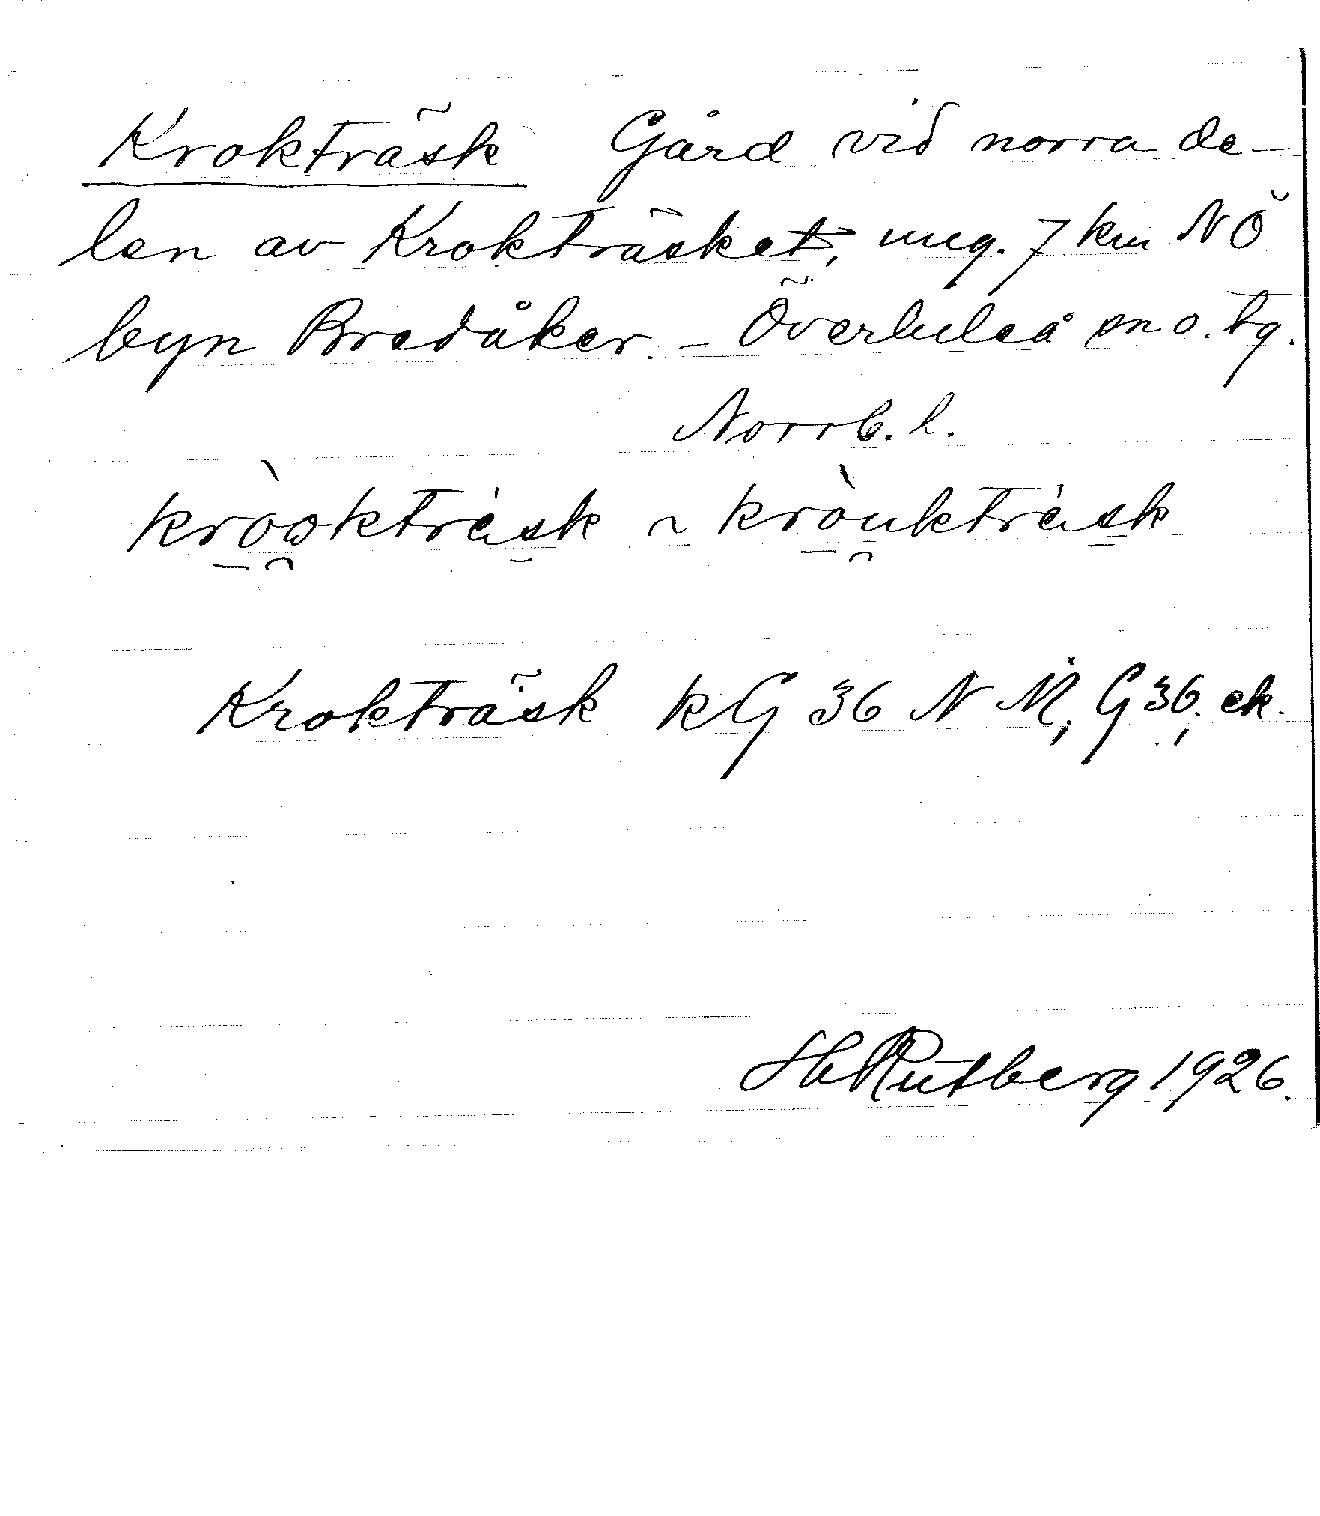 Krokträsk Gård vid norra de-
len av Krokträsket, ung. 7 km NÖ
byn Bredåker. – Överluleå sn o. tg.
Norrb. l.
kròωkträsk ~ kròukträsk
Krokträsk kG 36 N M, G 36, ek.
H Rutberg 1926.